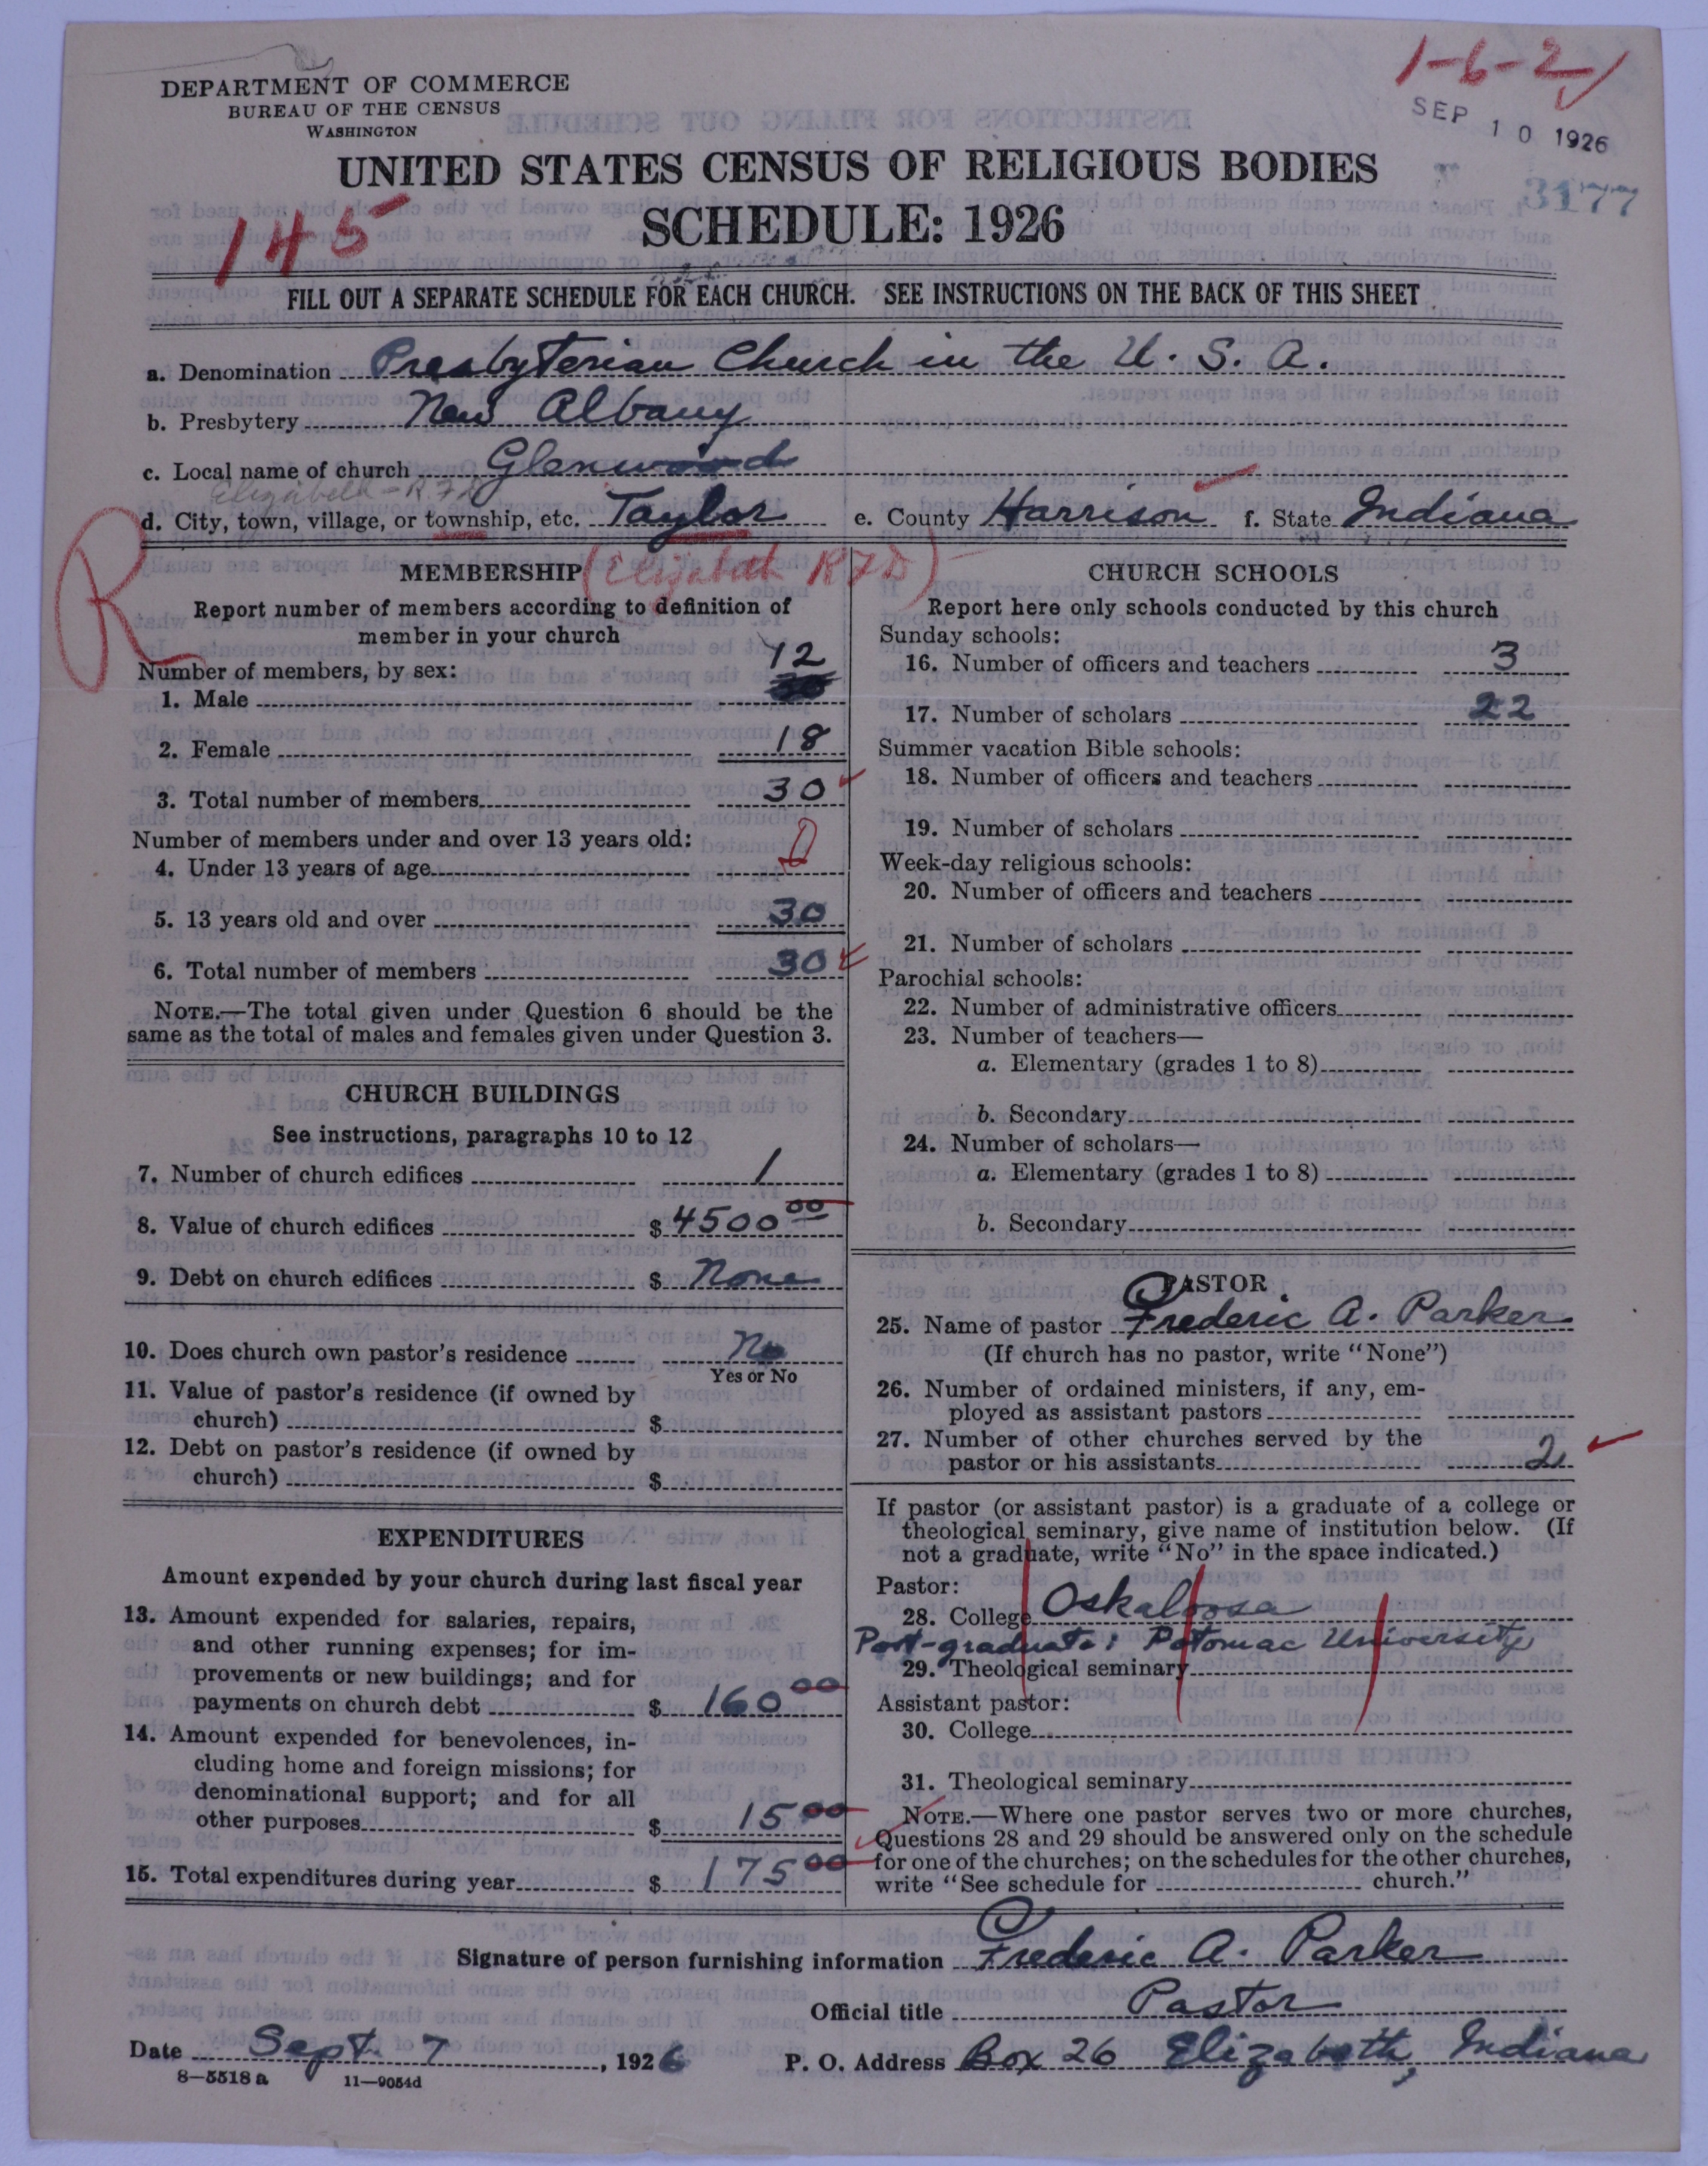 DEPARTMENT OF COMMERCE
BUREAU OF THE CENSUS
WASHINGTON
1-6-2
SEP 10 1926
3177
UNITED STATES CENSUS OF RELIGIOUS BODIES
SCHEDULE: 1926
145
FILL OUT A SEPARATE SCHEDULE FOR EACH CHURCH. SEE INSTRUCTIONS ON THE BACK OF THIS SHEET
a. Denomination Presbyterian Church in the U. S. A.
b. Presbytery New Albany
c. Local name of church Glenwood
Elizabeth - RFD
d. City, town, village, or township, etc. Taylor e. County Harrison f. State Indiana
R
(Elizabeth RFD)
MEMBERSHIP
Report number of members according to definition of
member in your church
Number of members, by sex:
12
1. Male
2. Female 18
3. Total number of members 30
Number of members under and over 13 years old:
4. Under 13 years of age 0
5. 13 years old and over 30
6. Total number of members 30
NOTE.—The total given under Question 6 should be the
same as the total of males and females given under Question 3.
CHURCH BUILDINGS
See instructions, paragraphs 10 to 12
7. Number of church edifices 1
8. Value of church edifices $ 4500 00
9. Debt on church edifices $ None
10. Does church own pastor's residence No
Yes or No
11. Value of pastor's residence (if owned by
church) $
12. Debt on pastor's residence (if owned by
church) $
EXPENDITURES
Amount expended by your church during last fiscal year
13. Amount expended for salaries, repairs,
and other running expenses; for im-
provements or new buildings; and for
payments on church debt $ 160 00
14. Amount expended for benevolences, in-
cluding home and foreign missions; for
denominational support; and for all
other purposes $ 15 00
15. Total expenditures during year $ 175 00
CHURCH SCHOOLS
Report here only schools conducted by this church
Sunday schools:
16. Number of officers and teachers 3
17. Number of scholars 22
Summer vacation Bible schools:
18. Number of officers and teachers
19. Number of scholars
Week-day religious schools:
20. Number of officers and teachers
21. Number of scholars
Parochial schools:
22. Number of administrative officers
23. Number of teachers—
a. Elementary (grades 1 to 8)
b. Secondary
24. Number of scholars—
a. Elementary (grades 1 to 8)
b. Secondary
PASTOR
25. Name of pastor Frederic A. Parker
(If church has no pastor, write "None")
26. Number of ordained ministers, if any, em-
ployed as assistant pastors
27. Number of other churches served by the
pastor or his assistants 2
If pastor (or assistant pastor) is a graduate of a college or
theological seminary, give name of institution below. (If
not a graduate, write "No" in the space indicated.)
Pastor:
28. College Oskaloosa
Post-graduate: Potomac University
29. Theological seminary
Assistant pastor:
30. College
31. Theological seminary
NOTE.—Where one pastor serves two or more churches,
Questions 28 and 29 should be answered only on the schedule
for one of the churches; on the schedules for the other churches,
write "See schedule for church."
Signature of person furnishing information Frederic A. Parker
Official title Pastor
Date Sept. 7, 1926 P. O. Address Box 26 Elizabeth, Indiana
8—5518 a 11—9054d